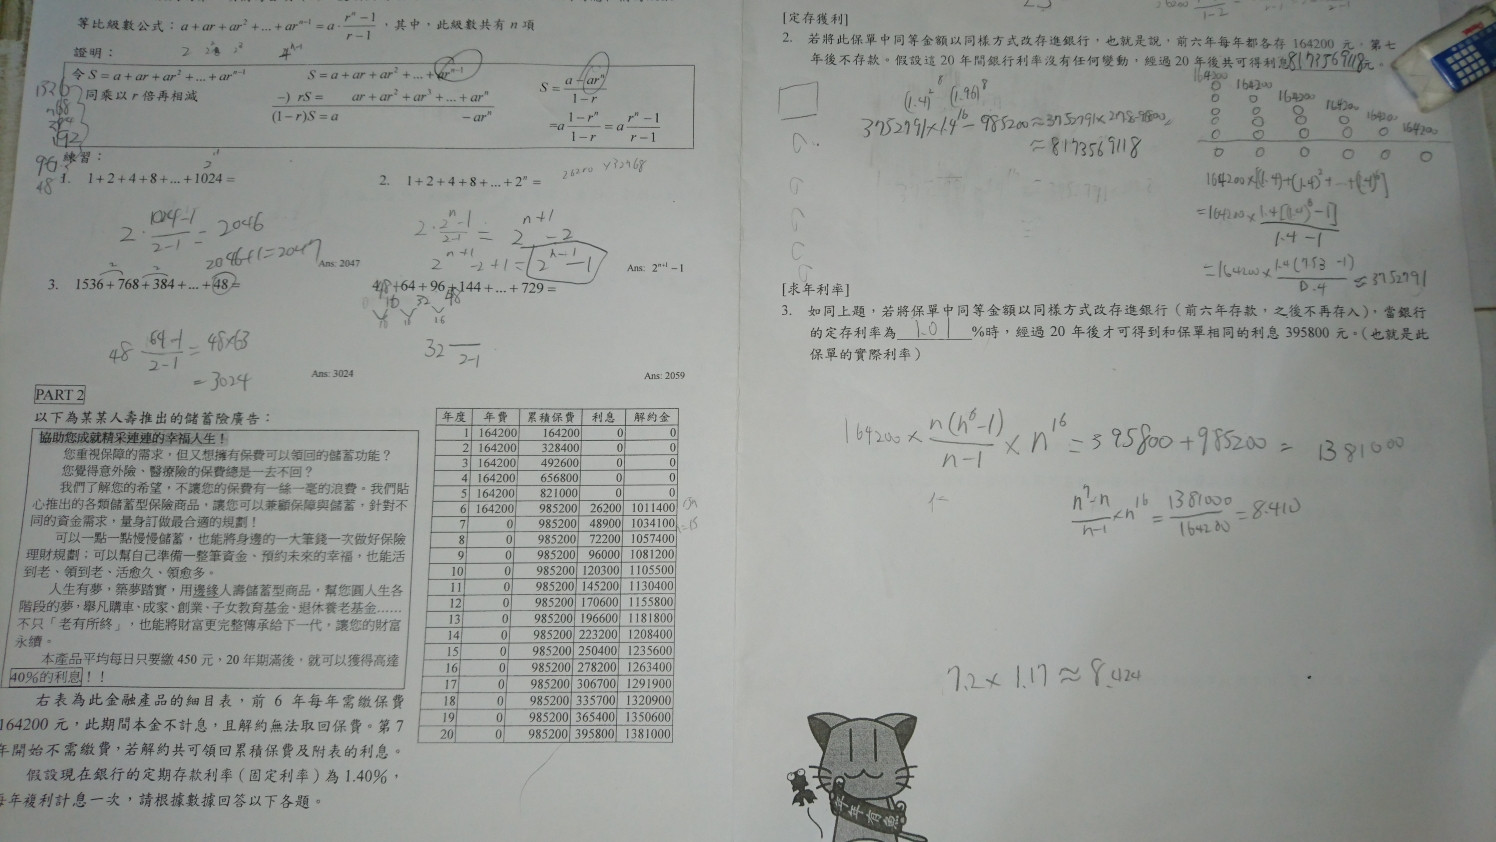 等比級數公式：a + ar + ar² + ... + arⁿ⁻¹ = a · (rⁿ − 1)/(r − 1)，其中，此級數共有 n 項
證明：
令 S = a + ar + ar² + ... + arⁿ⁻¹
同乘以 r 倍再相減
S = a + ar + ar² + ... + arⁿ⁻¹
−) rS = ar + ar² + ar³ + ... + arⁿ
(1−r)S = a − arⁿ
S = (a − arⁿ)/(1 − r)
= a (1 − rⁿ)/(1 − r) = a (rⁿ − 1)/(r − 1)
練習：
1. 1+2+4+8+...+1024 =
2 · (1024−1)/(2−1) = 2046
2046+1=2047
Ans: 2047
2. 1+2+4+8+...+2ⁿ =
26200 × 32768
2 · (2ⁿ−1)/(2−1) = 2ⁿ⁺¹ − 2
2ⁿ⁺¹ − 2 + 1 = 2ⁿ⁺¹ − 1
Ans: 2ⁿ⁺¹ − 1
3. 1536+768+384+...+48 =
48 (64−1)/(2−1) = 48×63
= 3024
Ans: 3024
48+64+96+144+...+729 =
16 32 48
16 16
32 —— 2−1
Ans: 2059
PART 2
以下為某某人壽推出的儲蓄險廣告：
協助您成就精采連連的幸福人生！
您重視保障的需求，但又想擁有保費可以領回的儲蓄功能？
您覺得意外險、醫療險的保費總是一去不回？
我們了解您的希望，不讓您的保費有一絲一毫的浪費。我們貼
心推出的各類儲蓄型保險商品，讓您可以兼顧保障與儲蓄，針對不
同的資金需求，量身訂做最合適的規劃！
可以一點一點慢慢儲蓄，也能將身邊的一大筆錢一次做好保險
理財規劃；可以幫自己準備一整筆資金、預約未來的幸福，也能活
到老、領到老、活愈久、領愈多。
人生有夢，築夢踏實，用邊緣人壽儲蓄型商品，幫您圓人生各
階段的夢，舉凡購車、成家、創業、子女教育基金、退休養老基金……
不只「老有所終」，也能將財富更完整傳承給下一代，讓您的財富
永續。
本產品平均每日只要繳 450 元，20 年期滿後，就可以獲得高達
40%的利息！！
右表為此金融產品的細目表，前 6 年每年需繳保費
164200 元，此期間本金不計息，且解約無法取回保費。第 7
年開始不需繳費，若解約共可領回累積保費及附表的利息。
假設現在銀行的定期存款利率（固定利率）為 1.40%，
每年複利計息一次，請根據數據回答以下各題。
年度 年費 累積保費 利息 解約金
1 164200 164200 0 0
2 164200 328400 0 0
3 164200 492600 0 0
4 164200 656800 0 0
5 164200 821000 0 0
6 164200 985200 26200 1011400
7 0 985200 48900 1034100
8 0 985200 72200 1057400
9 0 985200 96000 1081200
10 0 985200 120300 1105500
11 0 985200 145200 1130400
12 0 985200 170600 1155800
13 0 985200 196600 1181800
14 0 985200 223200 1208400
15 0 985200 250400 1235600
16 0 985200 278200 1263400
17 0 985200 306700 1291900
18 0 985200 335700 1320900
19 0 985200 365400 1350600
20 0 985200 395800 1381000
[定存獲利]
2. 若將此保單中同等金額以同樣方式改存進銀行，也就是說，前六年每年都各存 164200 元，第七
年後不存款。假設這 20 年間銀行利率沒有任何變動，經過 20 年後共可得利息8173569118元。
164200 164200 164200 164200 164200 164200
(1.4)² ⁸ (1.96)⁸
3752791×1.4¹⁶ − 985200
≈ 8173569118
164200×[(1.4)+(1.4)²+...+(1.4)⁶]
= 164200 × 1.4[(1.4)⁶−1]/(1.4−1)
= 164200 × 1.4(7.53−1)/0.4 ≈ 3752791
[求年利率]
3. 如同上題，若將保單中同等金額以同樣方式改存進銀行（前六年存款，之後不再存入），當銀行
的定存利率為 1.01 %時，經過 20 年後才可得到和保單相同的利息 395800 元。（也就是此
保單的實際利率）
164200 × n(n⁶−1)/(n−1) × n¹⁶ = 395800 + 985200 = 1381000
(n⁷−n)/(n−1) × n¹⁶ = 1381000/164200 = 8.410
7.2 × 1.17 ≈ 8.424
年年有魚